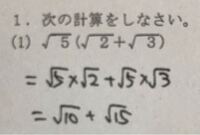 1．次の計算をしなさい。
(1) √5(√2+√3)
= √5×√2+√5×√3
= √10 + √15